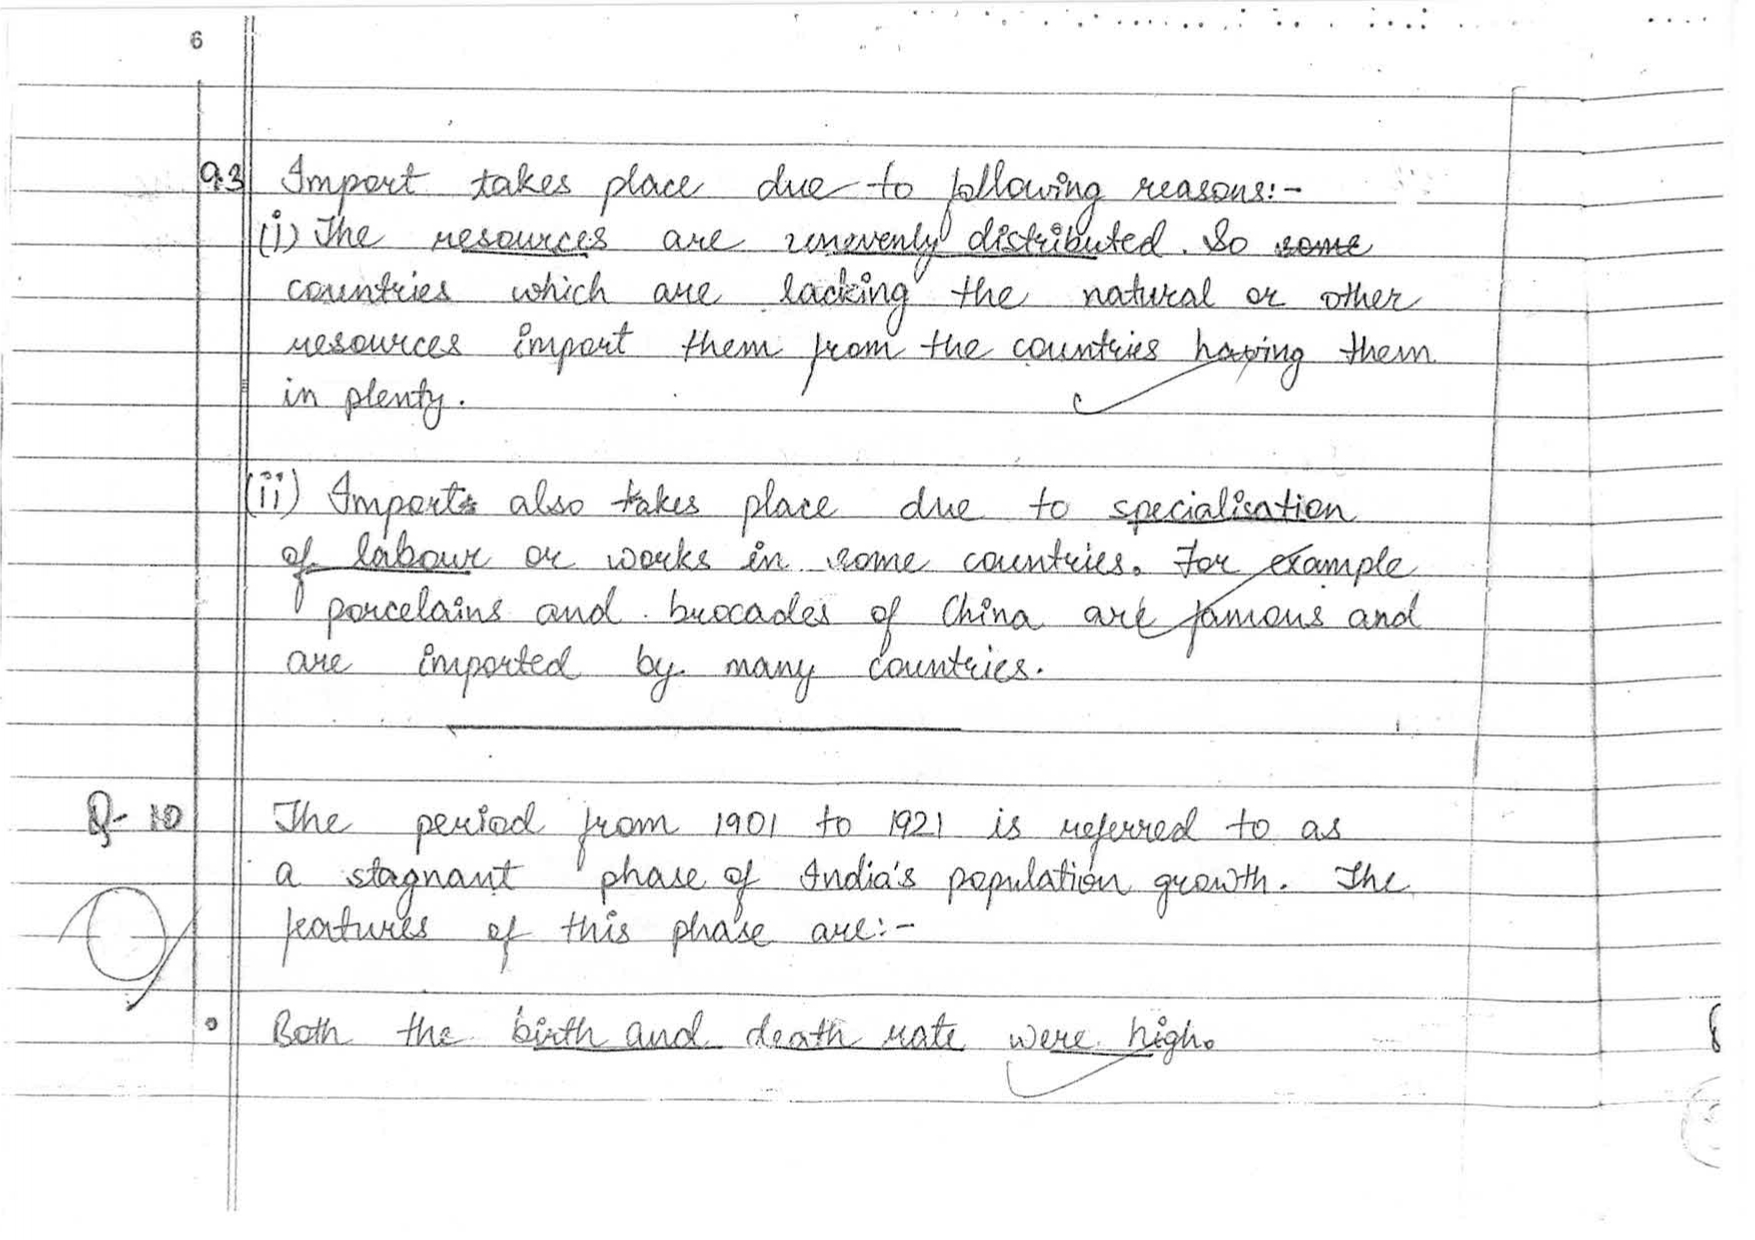 6
9.3 Import takes place due to following reasons:-
(i) The resources are unevenly distributed. So some
countries which are lacking the natural or other
resources import them from the countries having them
in plenty.
(ii) Imports also takes place due to specialisation
of labour or works in some countries. For example
porcelains and brocades of China are famous and
are imported by many countries.
Q-10 The period from 1901 to 1921 is referred to as
a stagnant phase of India's population growth. The
features of this phase are:-
Both the birth and death rate were high.